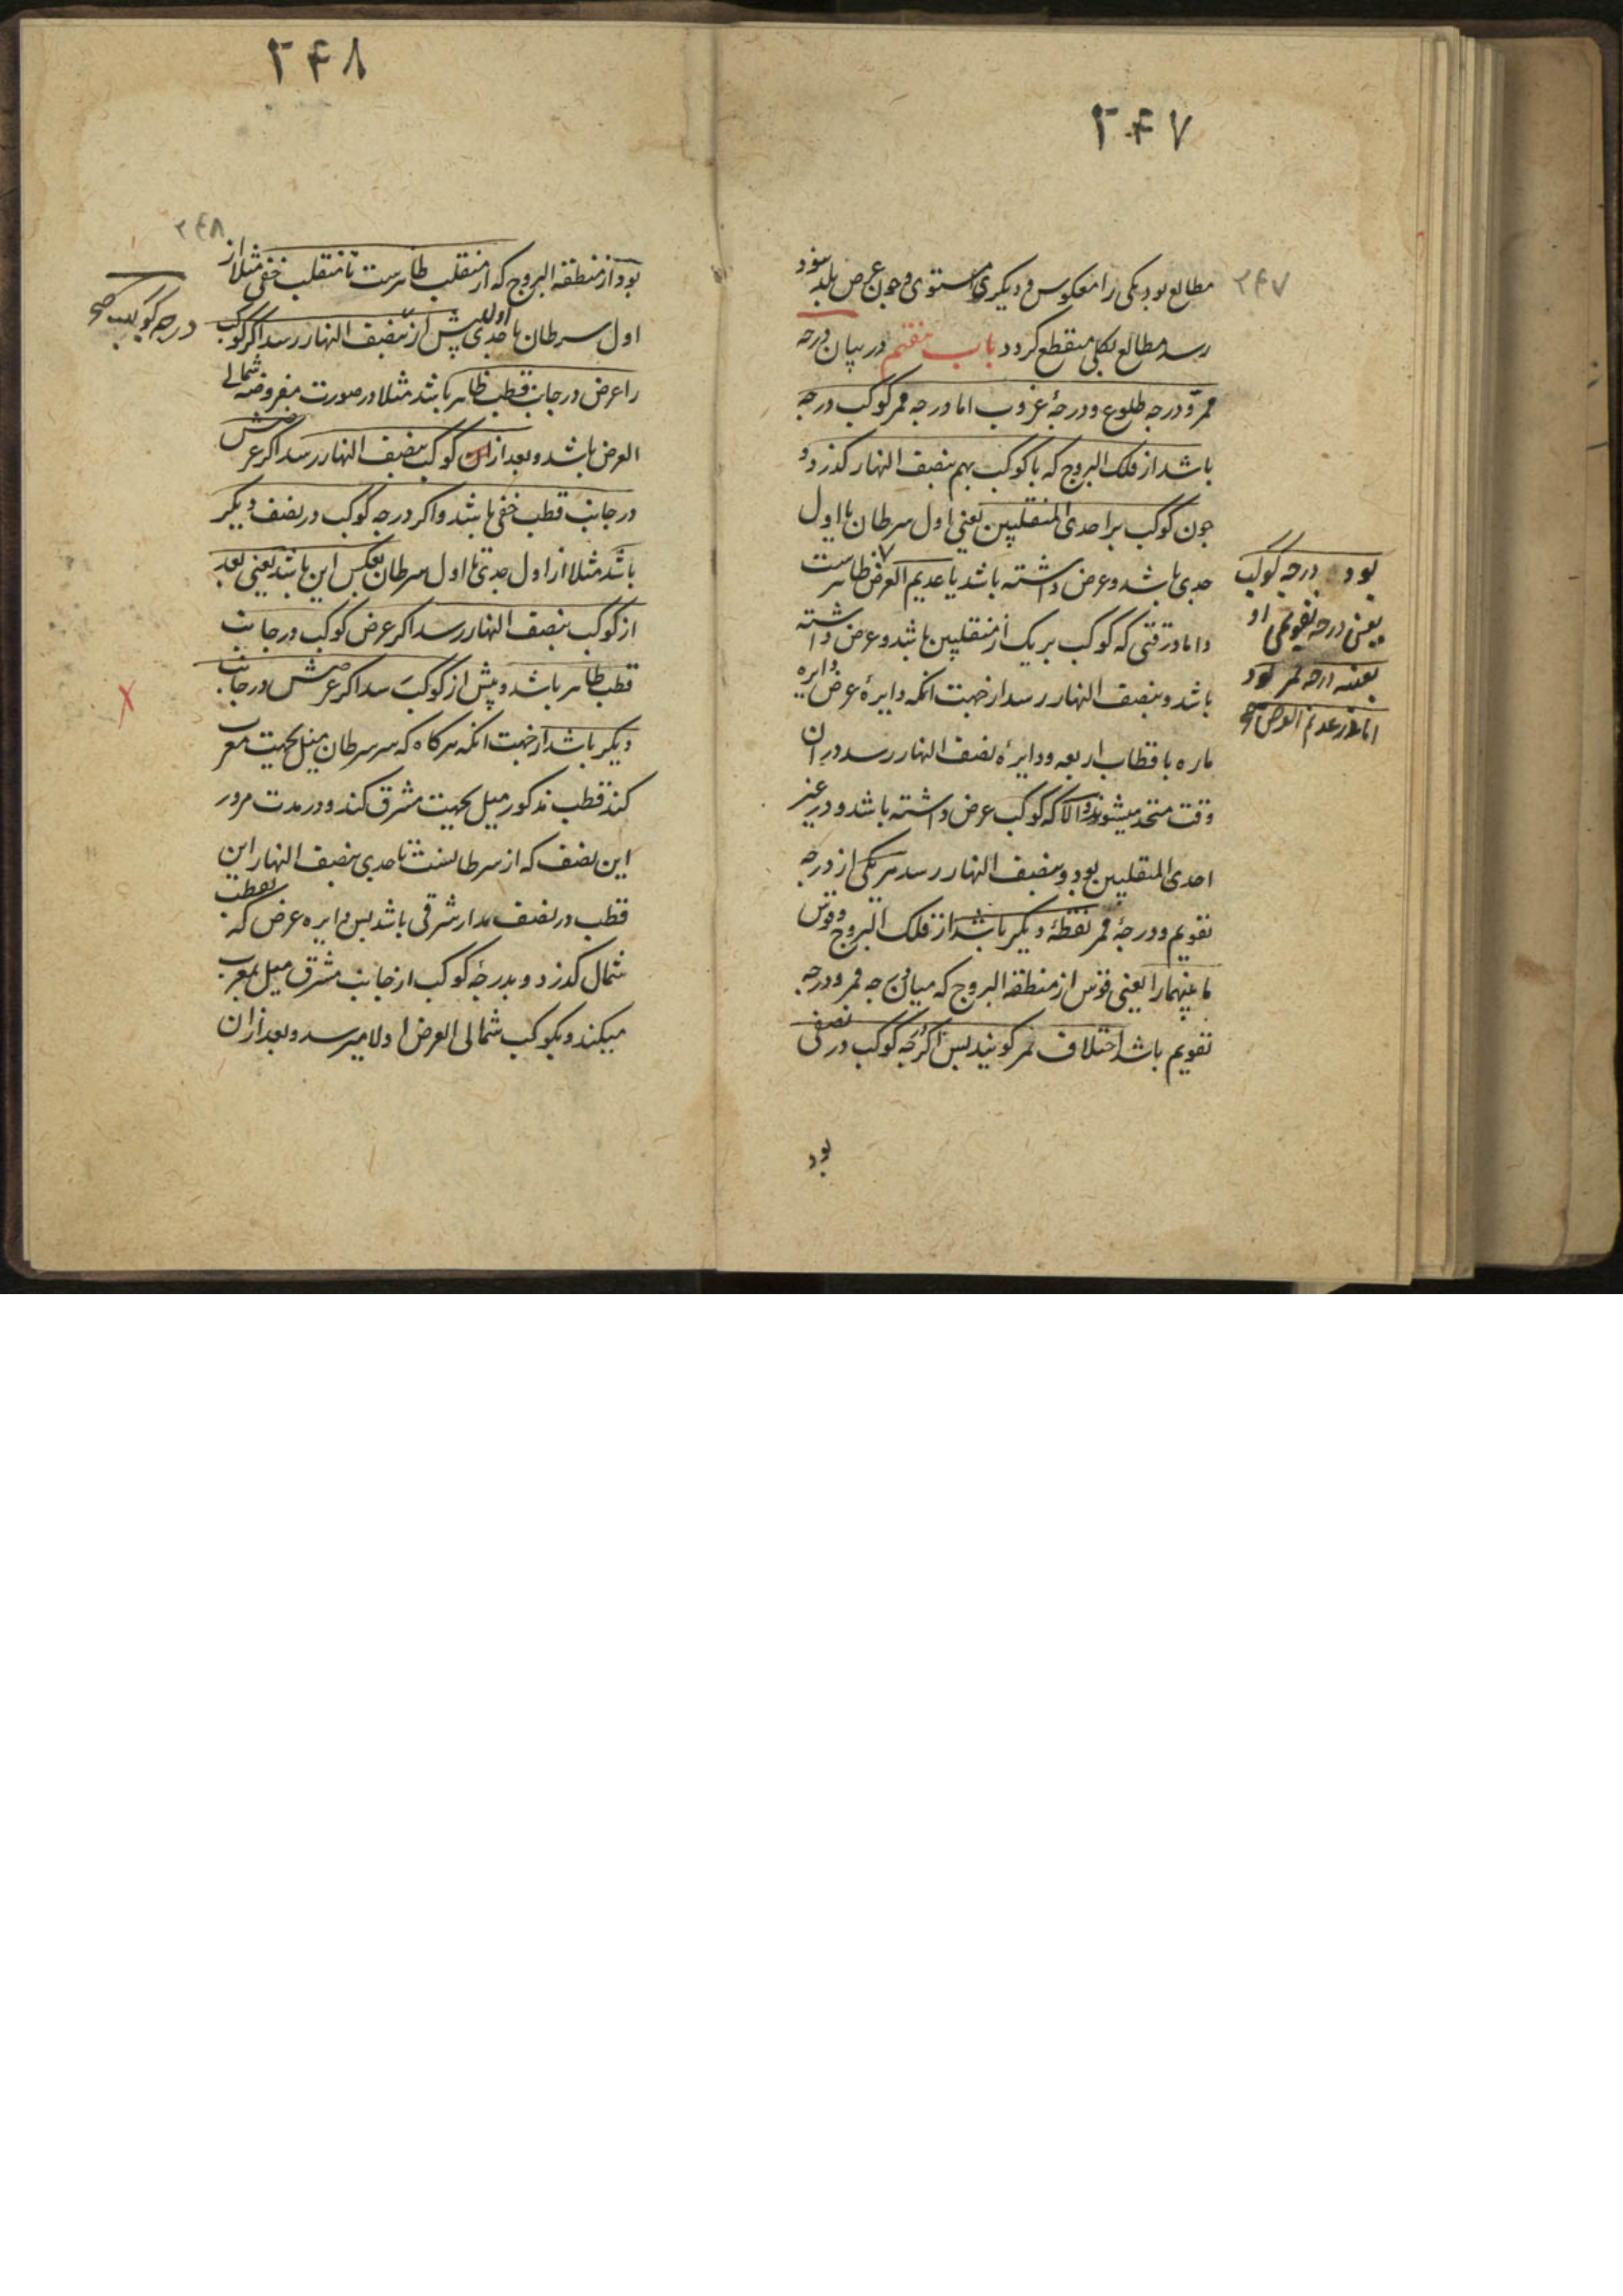 ۲۴۷
۲۴۷
مطالع بود یکی را معکوس و دیکری مستوی و چون عرض بلد بنود
رسد مطالع بکلی منقطع کردد باب هفتم در بیان درجه
ممر و درجه طلوع و درجهٔ غروب اما درجه ممر کوکب درجه
باشد از فلک البروج که با کوکب بهم بنصف النهار کذرد و
چون کوکب بر احدی المنقلبین یعنی اول سرطان یا اول
جدی باشد و عرض داشته باشد یا عدیم العرض ظاهرست
و اما در وقتی که کوکب بر یک از منقلبین باشد و عرض داشته
باشد و بنصف النهار رسد از جهت انکه دایرهٔ عرض دایره
ماره باقطاب اربعه و دایرهٔ نصف النهار رسد در ان
وقت متحد میشوند و الا که کوکب عرض داشته باشد و در غیر
احدی المنقلبین بود و بنصف النهار رسد هر یکی از درجه
تقویم و درجهٔ ممر نقطهٔ دیکر باشد از فلک البروج و قوس
مابینهما را یعنی قوس از منطقة البروج که میان درجه ممر و درجه
تقویم باشد اختلاف ممر کویند پس اکر درجه کوکب در نصفی
بود
بود درجه کوکب
یعنی درجه تقویمی او
بعینه درجه ممر بود
اما در عدیم العرض
۲۴۸
۲۴۸
بود از منطقة البروج که از منقلب ظاهرست تا منقلب خفی مثلا از
اول سرطان تا اول جدی پیش از بنصف النهار رسد اکر کوکب
را عرض در جانب قطب ظاهر باشد مثلا در صورت مفروضه شمالی
العرض باشد و بعد از ان کوکب بنصف النهار رسد اکر عرضش
در جانب قطب خفی باشد و اکر درجه کوکب در نصف دیکر
باشد مثلا از اول جدی تا اول سرطان بعکس این باشد یعنی بعد
از کوکب بنصف النهار رسد اکر عرض کوکب در جانب
قطب ظاهر باشد و پیش از کوکب رسد اکر عرضش در جانب
دیکر باشد از جهت انکه هرکاه که سر سرطان میل بجهت مغرب
کند قطب مذکور میل بجهت مشرق کند و در مدت مرور
این نصف که از سرطانست تا جدی بنصف النهار این
قطب در نصف مدار شرقی باشد پس دایره عرض که بقطب
شمال کذرد و بدرجهٔ کوکب از جانب مشرق میل بمغرب
میکند و بکوکب شمالی العرض اولا میرسد و بعد از ان
درجه کوکب